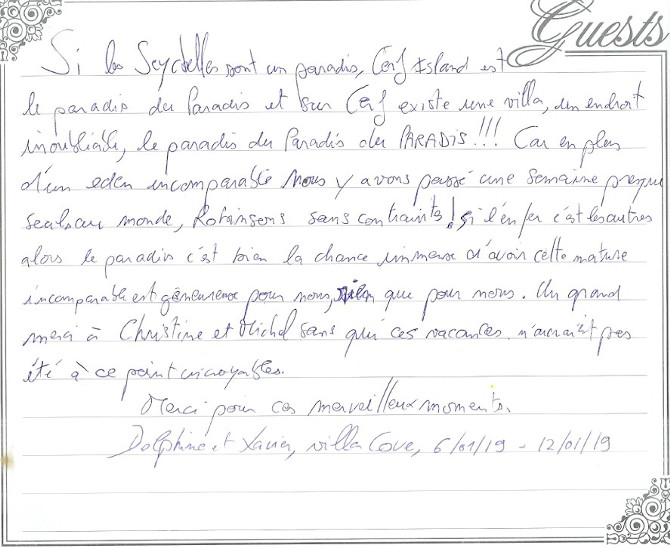 Guests
Si les Seychelles sont un paradis, Cerf Island est
le paradis du Paradis et sur Cerf existe une villa, un endroit
inoubliable, le paradis du Paradis du PARADIS!!! Car en plus
d'un eden incomparable nous y avons passé une semaine presque
seuls au monde, Robinsons sans contraintes! si l'enfer c'est les autres
alors le paradis c'est bien la chance immense d'avoir cette nature
incomparable et généreuse pour nous, rien que pour nous. Un grand
merci à Christine et Michel sans qui ces vacances n'aurait pas
été à ce point incroyables.
Merci pour ces merveilleux moments.
Delphine et Xavier, villa Cove, 6/01/19 - 12/01/19